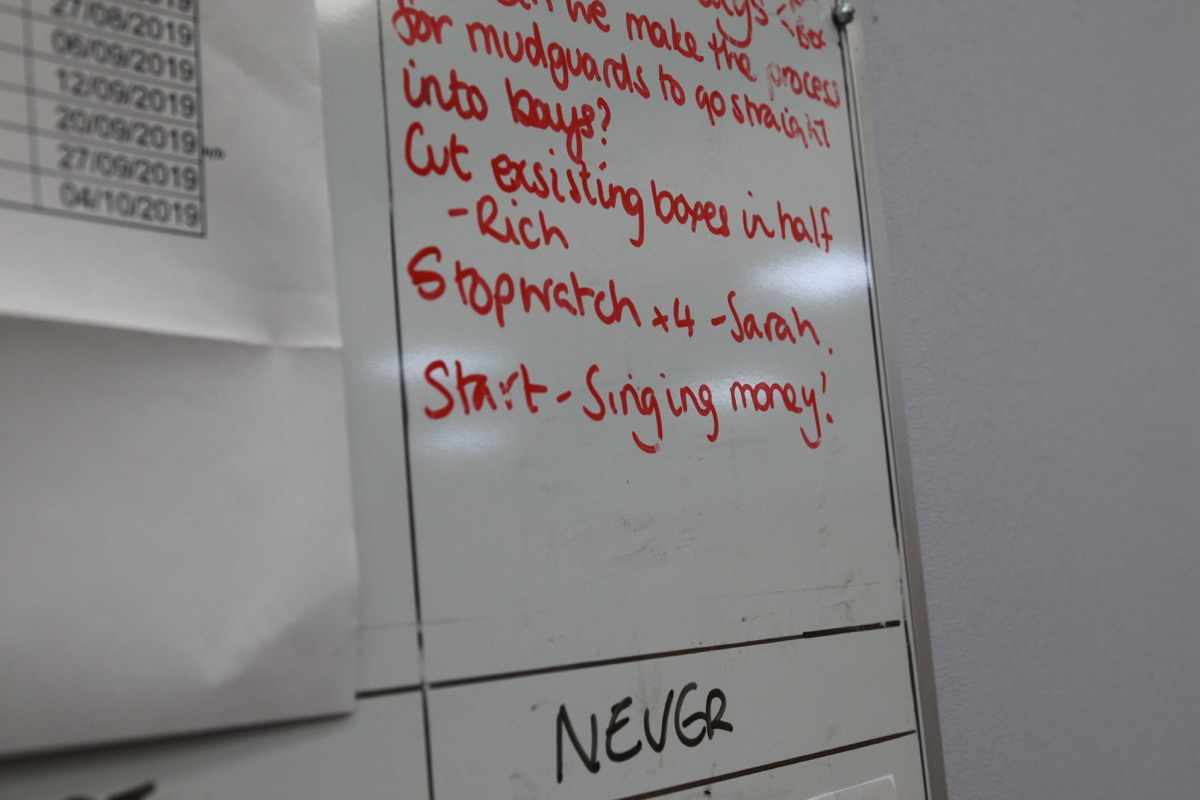 27/08/2019
06/09/2019
12/09/2019
20/09/2019
27/09/2019
04/10/2019
Box
we make the process
for mudguards to go straight
into bays?
Cut exsisting boxes in half
-Rich
Stopwatch x4 -Sarah.
Start - Singing money!
NEVER